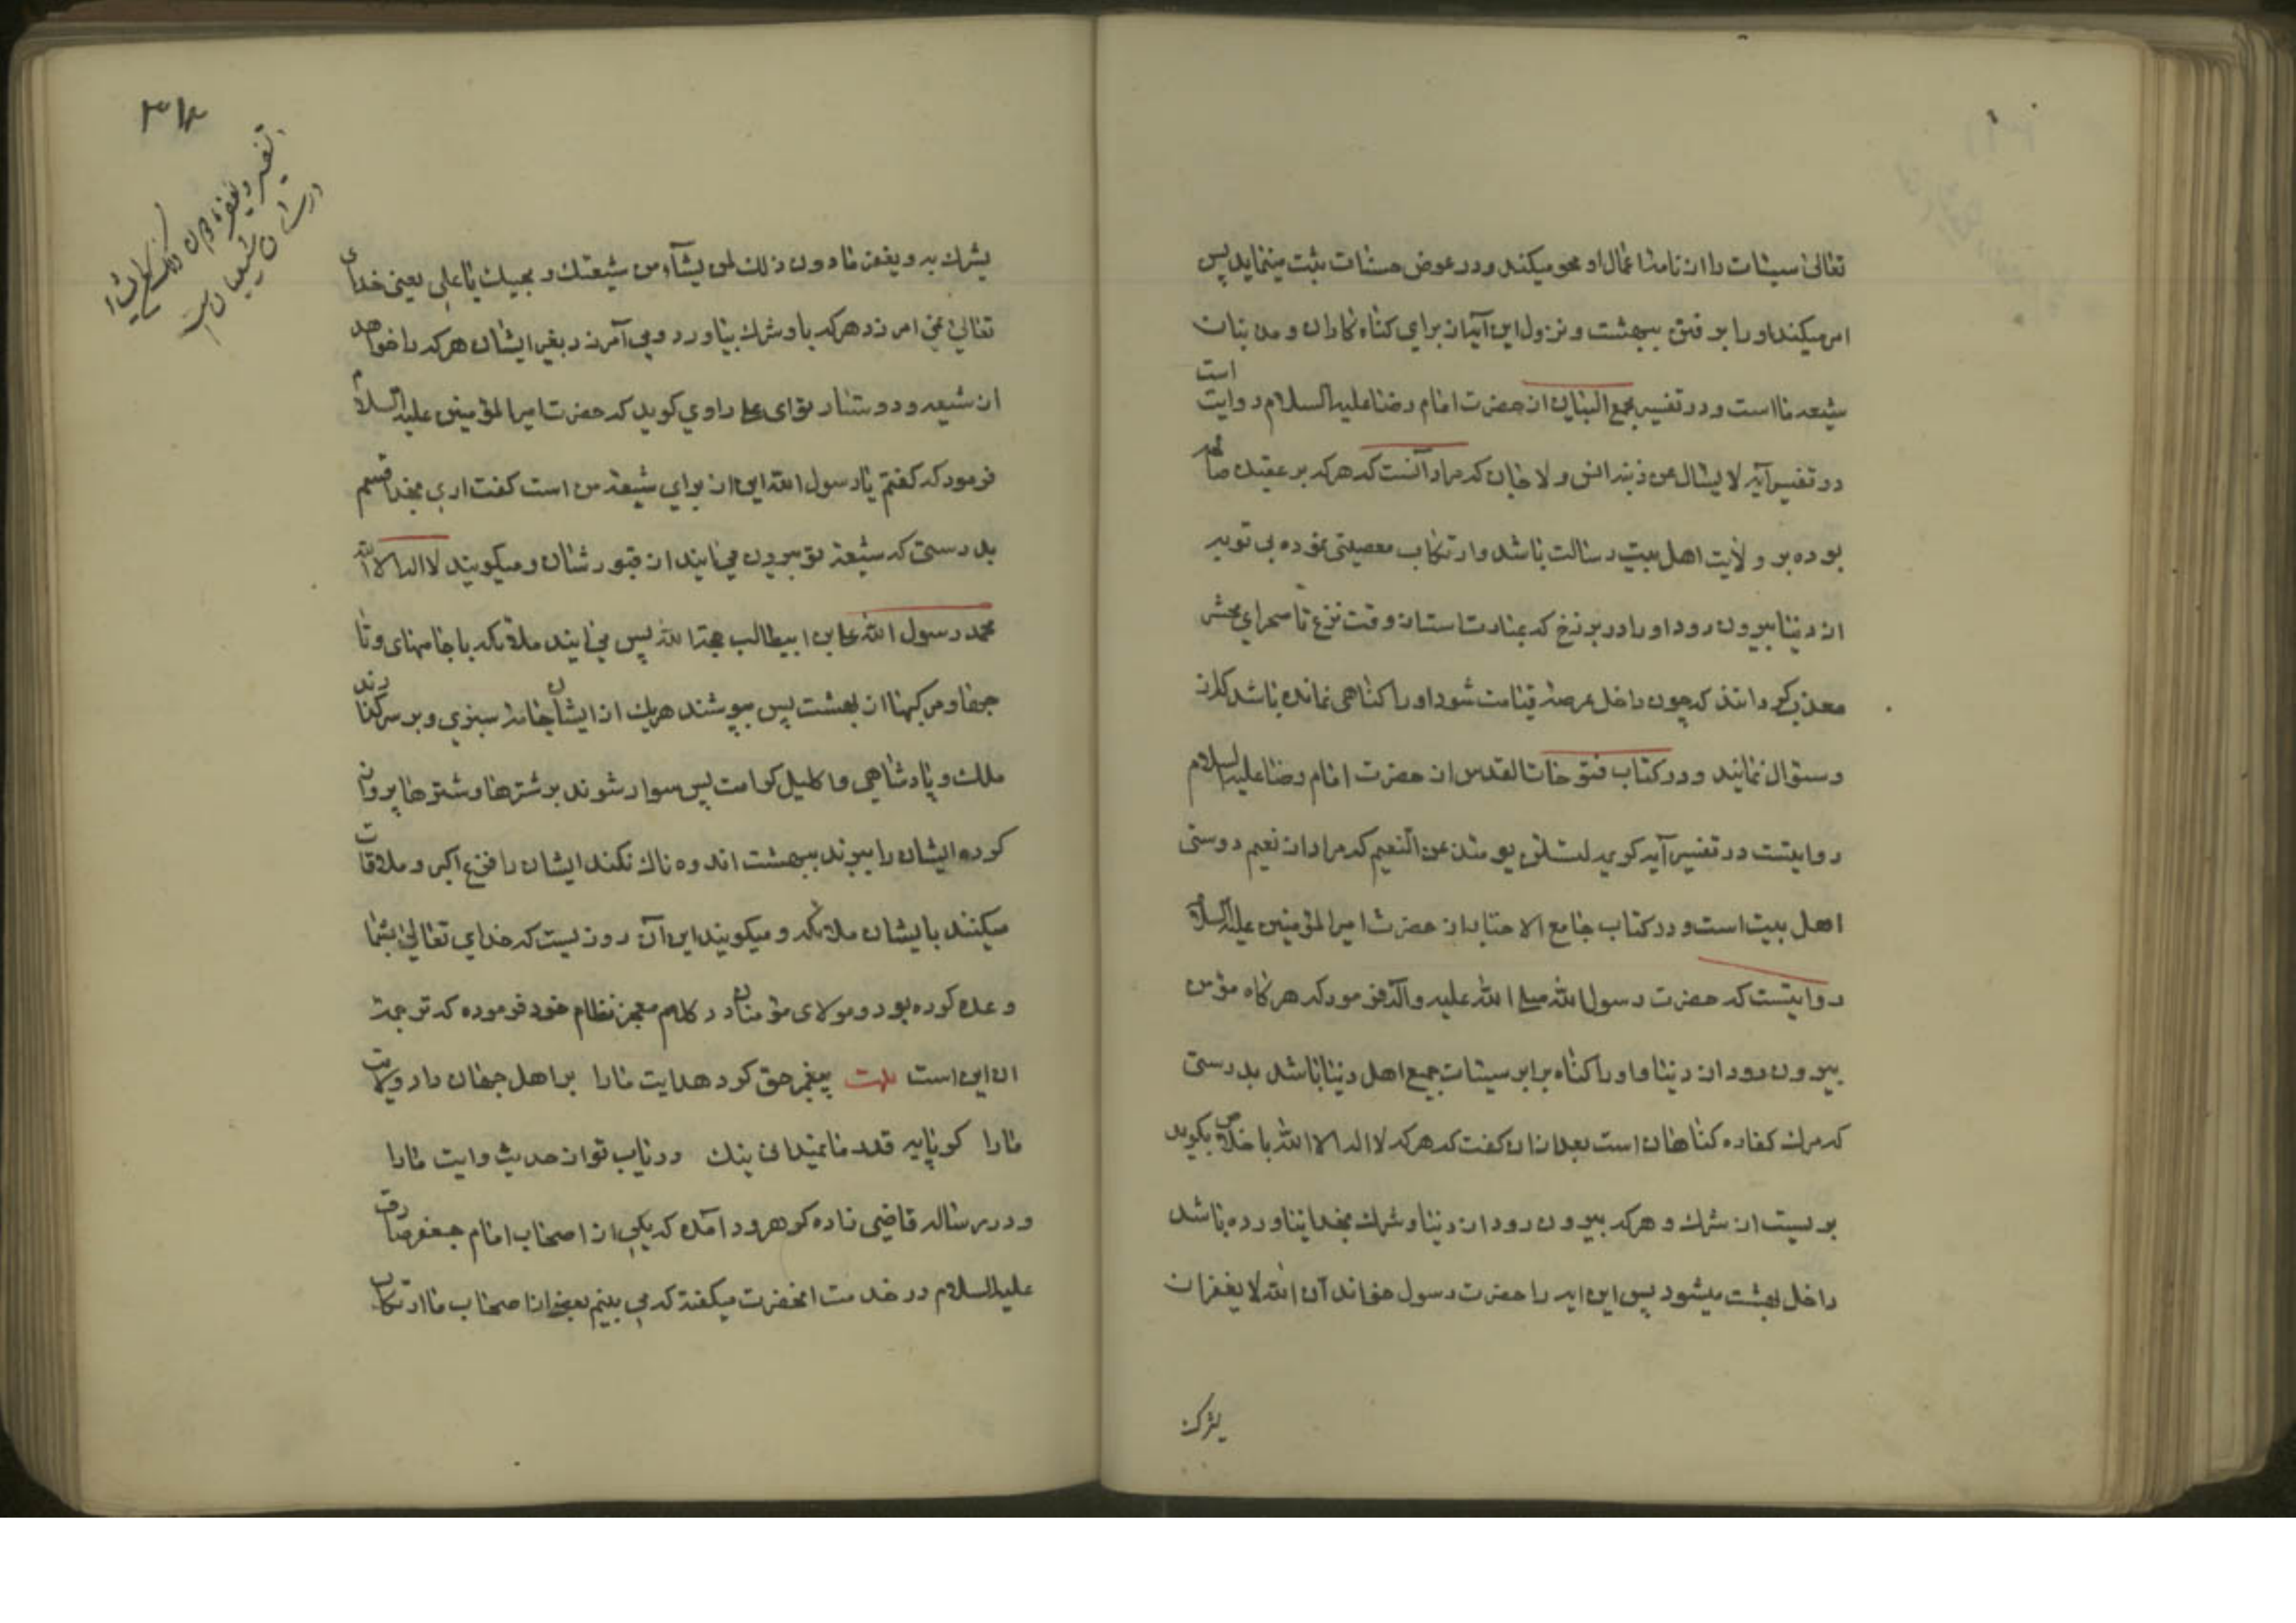 تعالی سیئات را از نامهٔ اعمال او محو میکند و در عوض حسنات ثبت مینماید پس
امر میکند او را بر فتن ببهشت و نزول این آیات برای کناه کاران و مذنبان
شیعه ما است و در تفسیر مجمع البیان از حضرت امام رضا علیه السلام روایت است
در تفسیر آیه لا یسال عن ذنبه انس و لا جان که مراد آنست که هر که بر عقیده صاف
بوده بر ولایت اهل بیت رسالت باشد و ارتکاب معصیتی نموده بی توبه
از دنیا بیرون رود او را در برزخ که عبارتست از وقت نزع تا صحرای محشر
معذب کردانند که چون داخل عرصهٔ قیامت شود او را کناهی نمانده باشد که از
و سؤال نمایند و در کتاب فتوحات القدس از حضرت امام رضا علیه السلام
روایتست در تفسیر آیه کریمه لتسئلن یومئذ عن النعیم که مراد از نعیم دوستی
اهل بیت است و در کتاب جامع الاخبار از حضرت امیر المؤمنین علیه السلام
روایتست که حضرت رسول الله صلی الله علیه و آله فرمود که هر کاه مؤمن
بیرون رود از دنیا و او را کناه برابر سیئات جمیع اهل دنیا باشد بدرستی
که مرک کفاره کناهان است بعد از ان کفت که هر که لا اله الا الله باخلاص بکوید
بریست از شرک و هر که بیرون رود از دنیا و شرک بخدا نیاورده باشد
داخل بهشت میشود پس این ایه را حضرت رسول خواند آن الله لا یغفر ان
یشرک
۳۱۴
تفسیر و یغفر ما دون ذلک لمن یشاء
در شان شیعیان است
یشرک به و یغفر ما دون ذلک لمن یشآء من شیعتک و محبیک یا علی یعنی خدای
تعالی نمی امرزد هر که باو شرک بیاورد و می آمرزد بغیر ایشان هر که را خواهد
از شیعه و دوستدار تو ای علی راوی کوید که حضرت امیر المؤمنین علیه السلام
فرمود که کفتم یا رسول الله این از برای شیعهٔ من است کفت اری بخدا قسم
بدرستی که شیعهٔ تو بیرون می ایند از قبور شان و میکویند لا اله الا الله
محمد رسول الله علی بن ابیطالب حجة الله پس می ایند ملائکه با جامهای و تا
جها و مرکبها از بهشت پس بپوشند هر یک از ایشان جامهٔ سبزی و بر سر کذارند
ملک و پادشاهی و اکلیل کرامت پس سوار شوند بر شترها و شترها پرواز
کرده ایشان را ببرند ببهشت اندوه ناک نکند ایشان را فزع اکبر و ملاقات
میکنند با ایشان ملائکه و میکویند این آن روزیست که خدای تعالی بشما
وعده کرده بود و مولای مؤمنان در کلام معجز نظام خود فرموده که ترجمهٔ
ان این است بیت پیغمبر حق کرد هدایت ما را بر اهل جهان داد ولایت
ما را کو پایه قدر ما نمیدانی نیک دریاب تو از حدیث وایت ما را
و در رساله قاضی زاده کوهرود آمده که یکی از اصحاب امام جعفر صادق
علیه السلام در خدمت انحضرت میکفته که می بینم بعضی از اصحاب ما ارتکاب